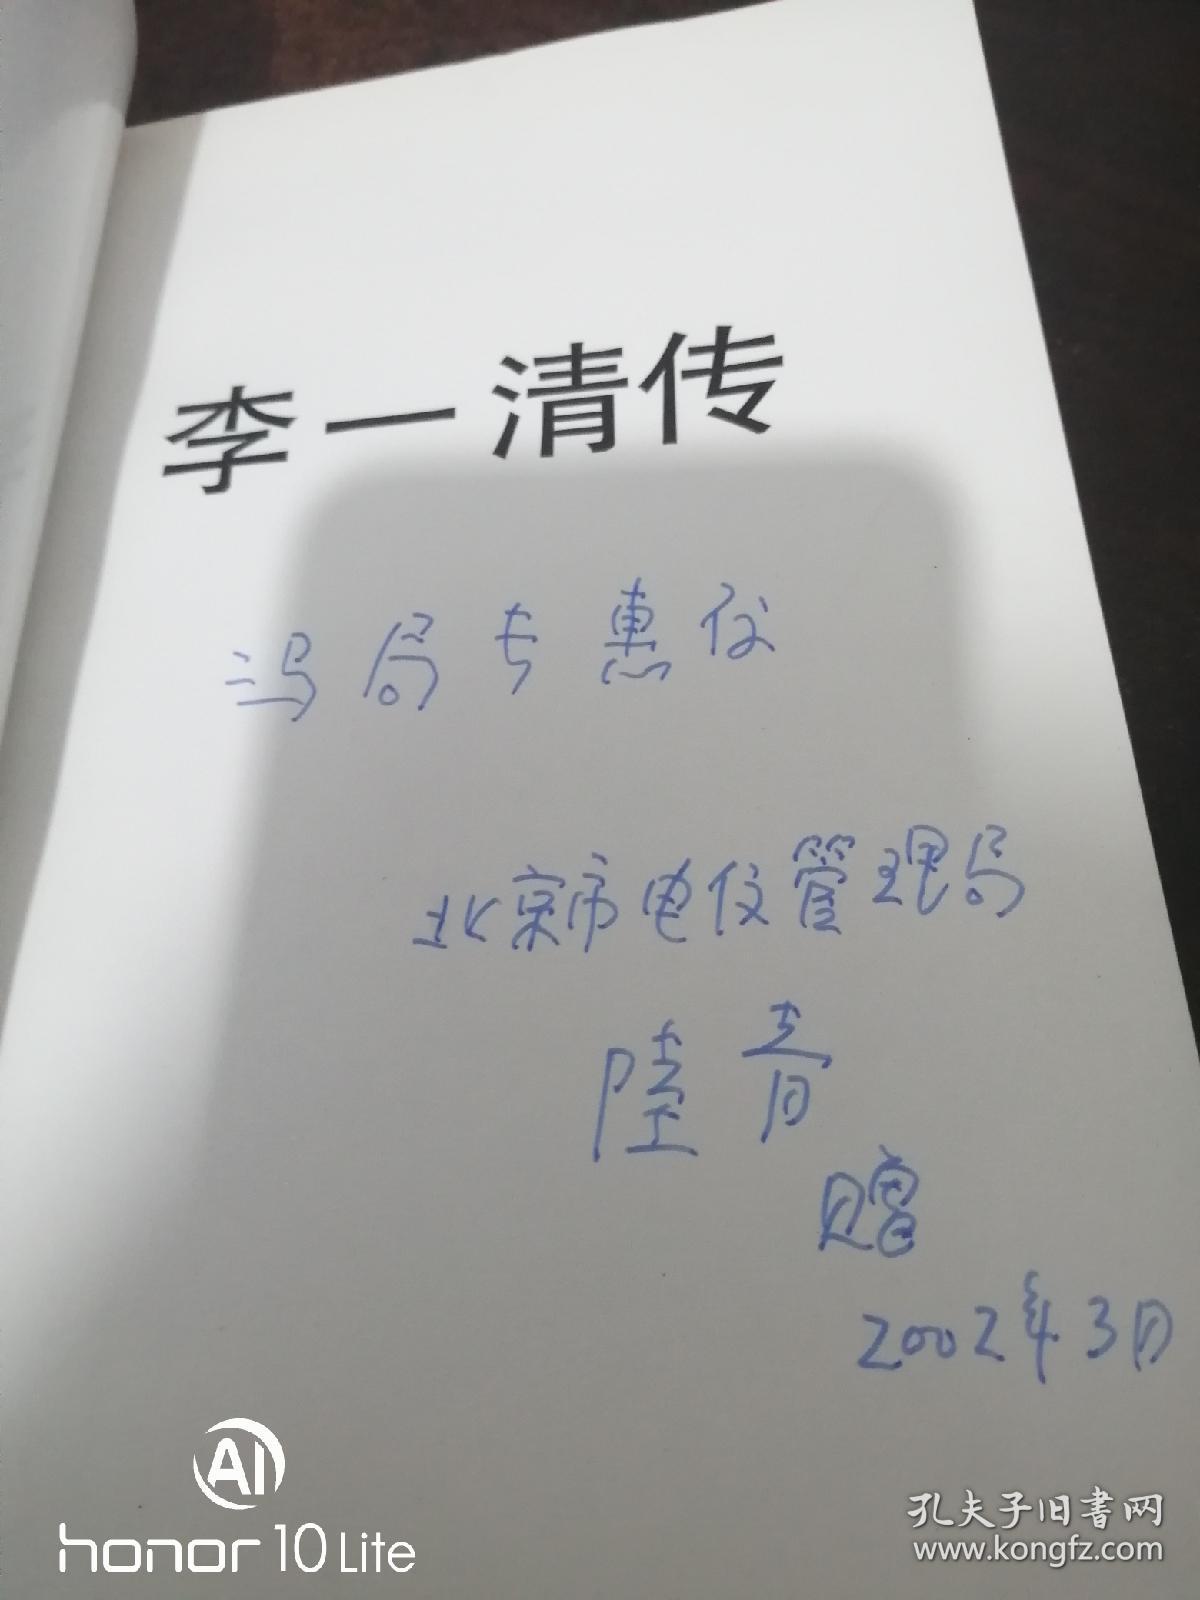 李一清传
冯局长惠存
北京市电信管理局
陆青
赠
2002年3月
AI
honor 10 Lite
孔夫子旧书网
www.kongfz.com